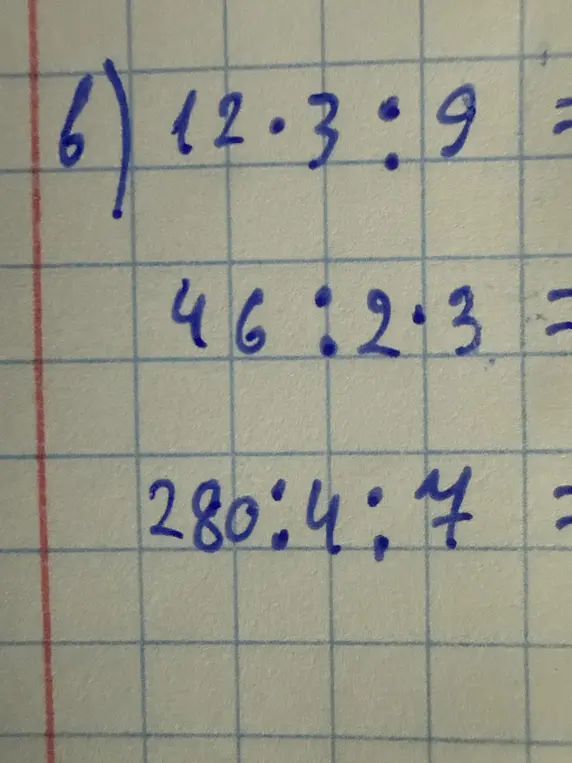 б) 12 · 3 : 9 =
46 : 2 · 3 =
280 : 4 : 7 =